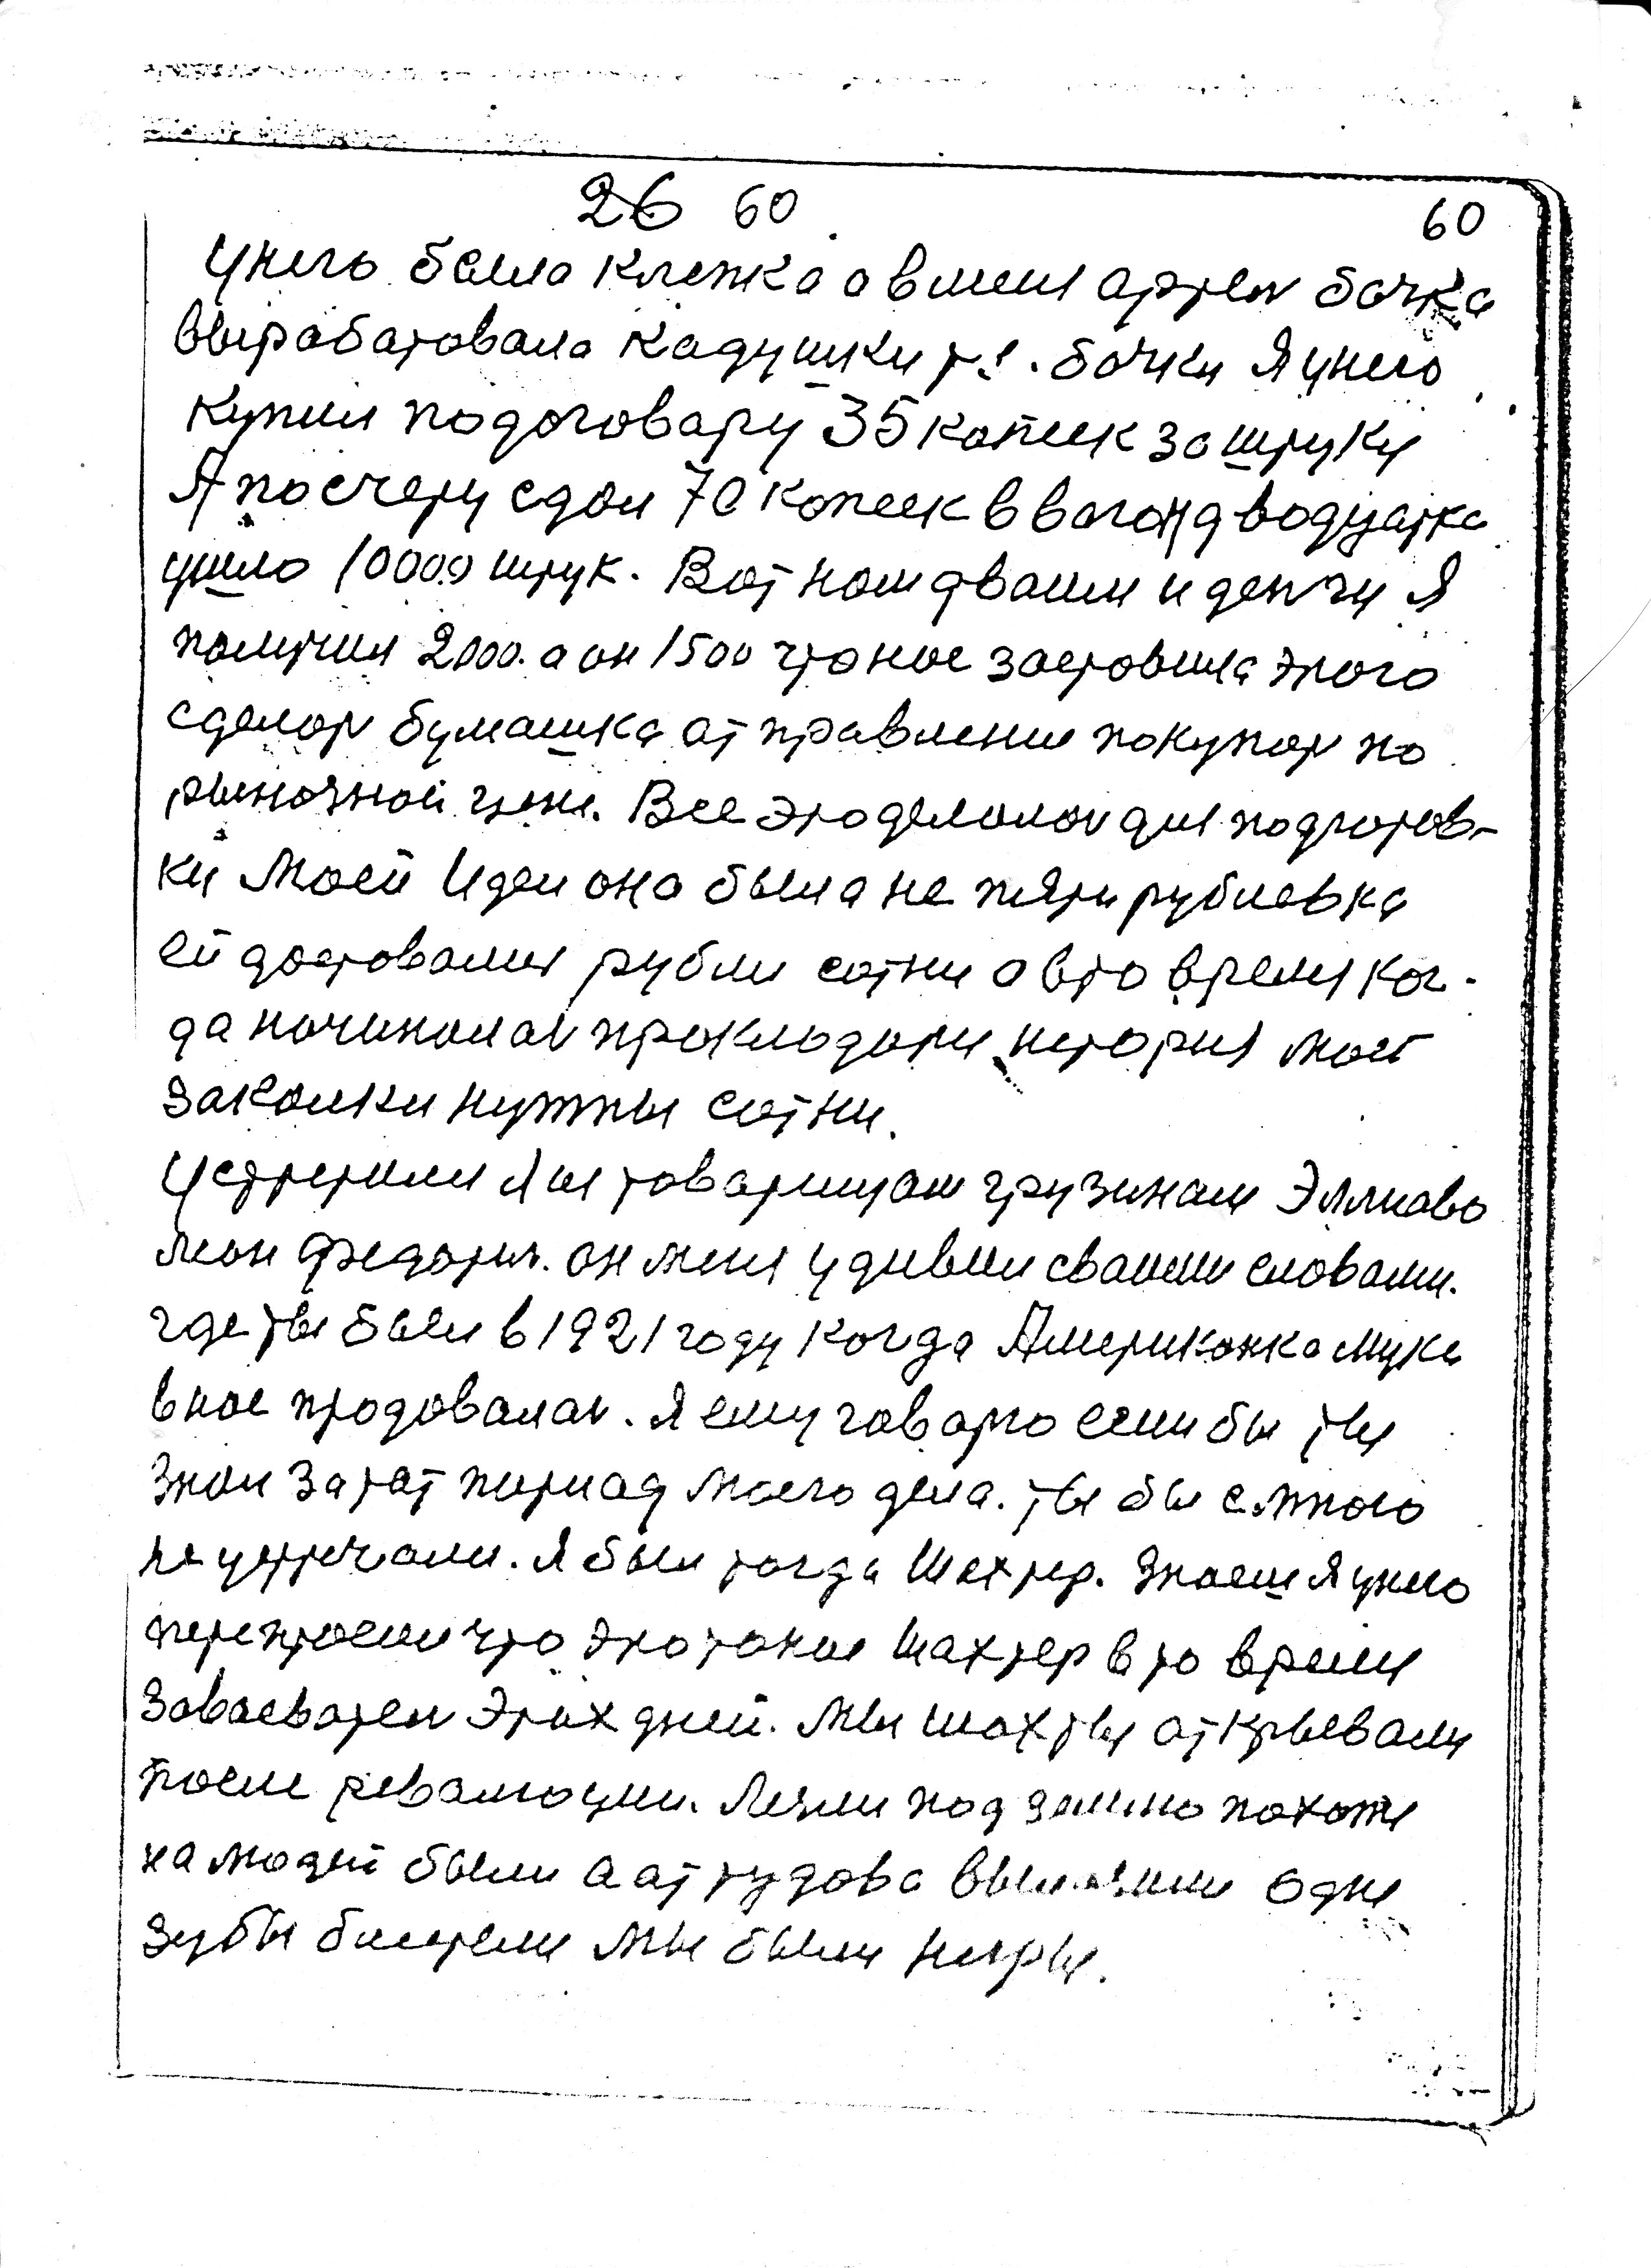 26 60 60
Унего была клепка а вменя артель бочка
вырабатовала кадушки т.е. бочки Я унего
купил подоговару 35 копеек заштуку
Я посчету сдал 70 копеек в вагон двадцатка
ушло 10000 штук. Вот нам двоим и деньги Я
получил 2000. а он 1500 что нас заставила этого
сделать бумашка от правления покупать по
рыночной цене. Все это делолось для подготов-
ки Моей Идеи она была не пяти рублевка
ей доставались рубли сотни а вто время ког-
да начиналась прокладати история моей
закалки нужны сотни.
Устретился я ш товарищам грузинам Эллиава
Леон Федорич. он меня удивил сваими словами.
где ты был в 1921 году когда Американка мука
внас продовалась. Я ему говарю если бы ты
знал за тот период моего дела. ты бы с много
не устречался. Я был тогда Шахтер. Знаеш я унего
перепросил что это такое Шахтер в то время
Завоеватель Этих дней. Мы шахты открывали
после революции. Лезли под землю похожи
на людей были а от тудова вылазили одне
зубы блистели мы были негры.